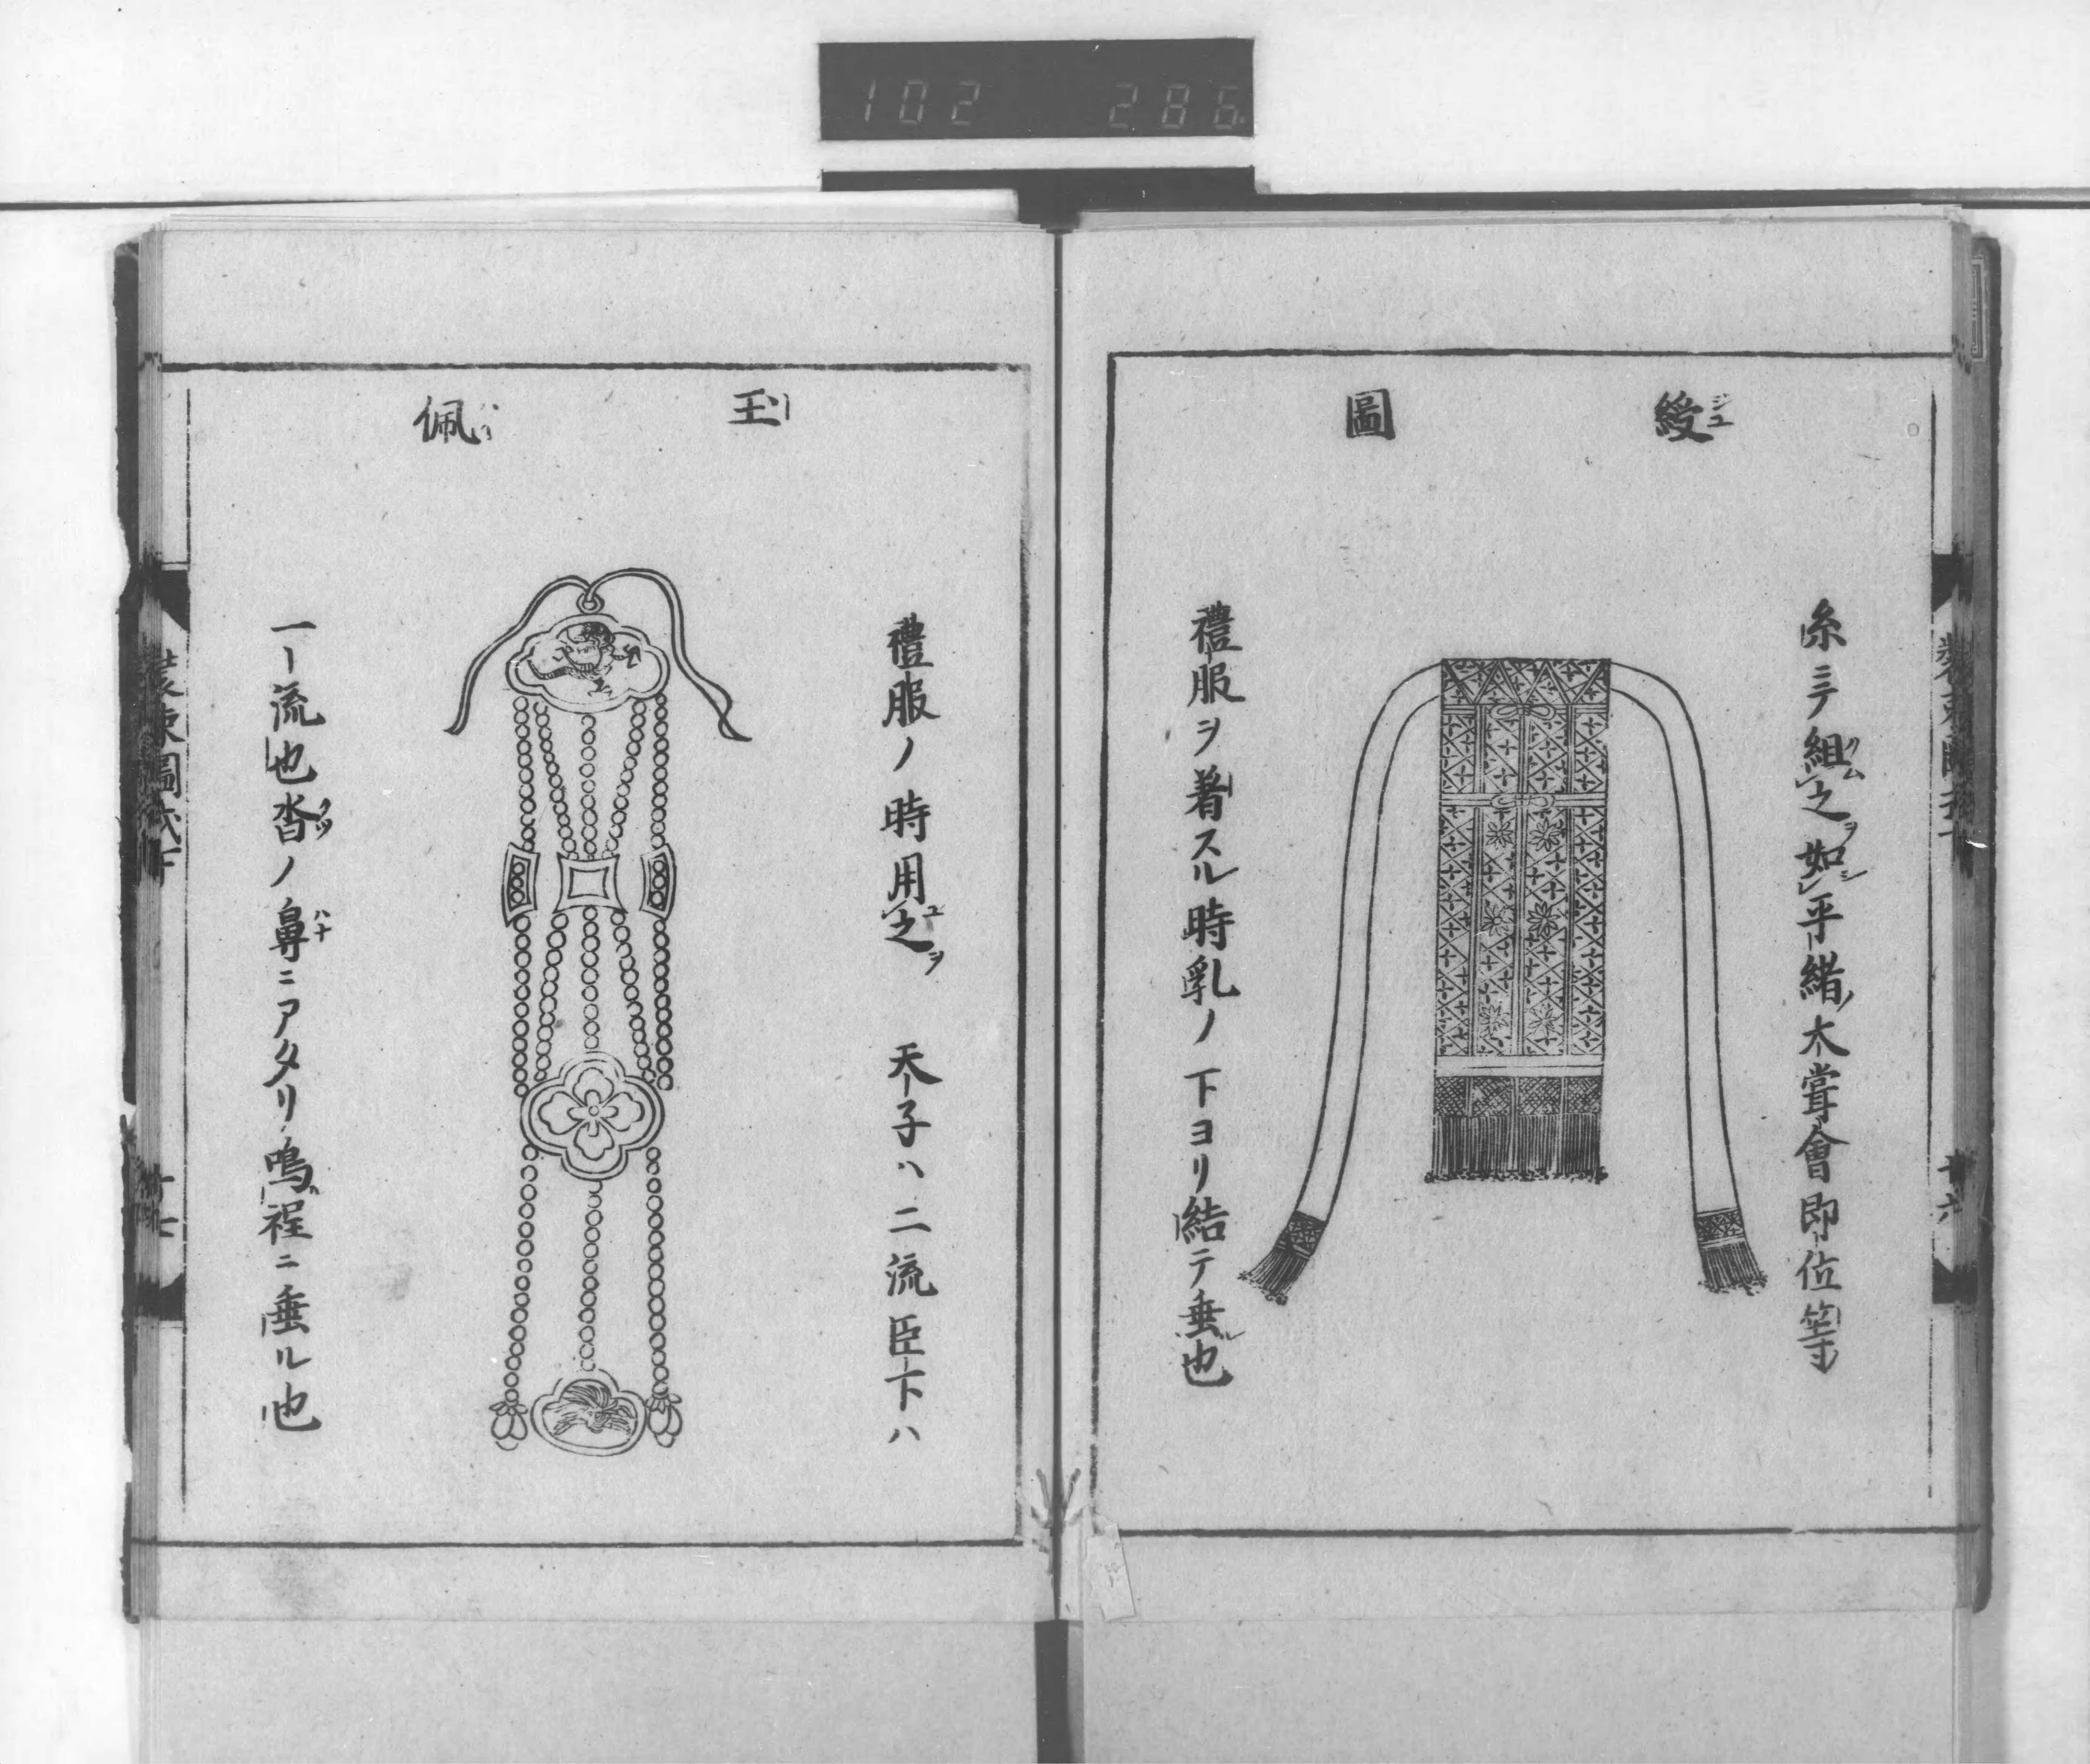 102 286
綬圖
糸ニテ組之如平緒大嘗會即位等
禮服ヲ著スル時乳ノ下ヨリ結テ垂ル也
玉佩
禮服ノ時用之 天子ハ二流臣下ハ
一流也沓ノ鼻ニアタリ鳴程ニ垂ル也
裝束圖式下